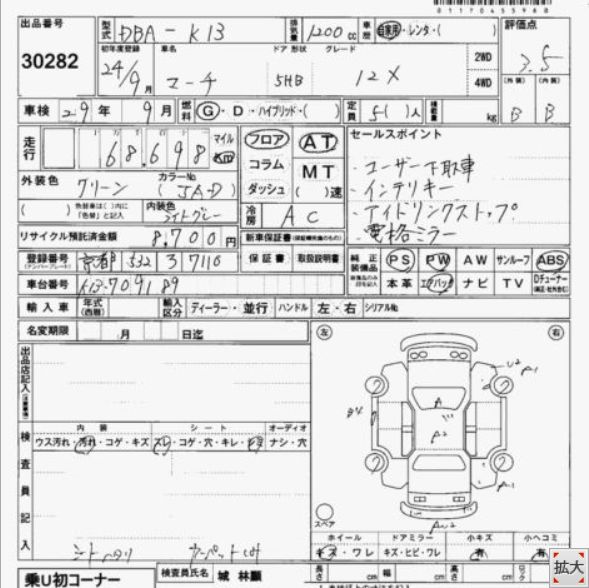 0117045988
出品番号 30282
型式 DBA - K13 排気量 1200 cc 車歴 自家用・レンタ・( ) 評価点 3.5
初年度登録 24/9月 車名 マーチ ドア形状 5HB グレード 12X 2WD 4WD (外装) B (内装) B
車検 29年 9月 燃料 G・D・ハイブリッド・( ) 定員 5( )人 積載量 kg
走行 68,698 マイル km フロア コラム ダッシュ AT MT ( )速
セールスポイント
・ユーザー下取車
・インテリキー
・アイドリングストップ
・電格ミラー
外装色 グリーン カラーNo. (JA-D)
( ) 色替車は( )内に「色替」と記入 内装色 ライトグレー 冷房 AC
リサイクル預託済金額 8,700円 新車保証書(保証継続残のもの)
保証書 取扱説明書
登録番号 (ナンバープレート) 京都 532 ス 7110
純正装備品 PS PW AW サンルーフ ABS
本革 エアバッグ ナビ TV Dチューナー
車台番号 K13-709189
輸入車 年式(西暦) 輸入区分 ディーラー・並行 ハンドル 左・右 シリアルNo.
名変期限 月 日迄
左 右
出品店記入
U2 A1
A
B4
A2
A1
AU2
検査員記入
内装 シート オーディオ
ウス汚れ・汚れ・コゲ・キズ スレ・コゲ・穴・キレ・ ナシ・穴
シートヘタリ
スペア
ホイール ドアミラー 小キズ 小ヘコミ
キズ・ワレ キズ・ヒビ・ワレ 有 有
乗U初コーナー 検査員氏名 城 林顯 長さ cm 幅 cm 高さ cm
拡大